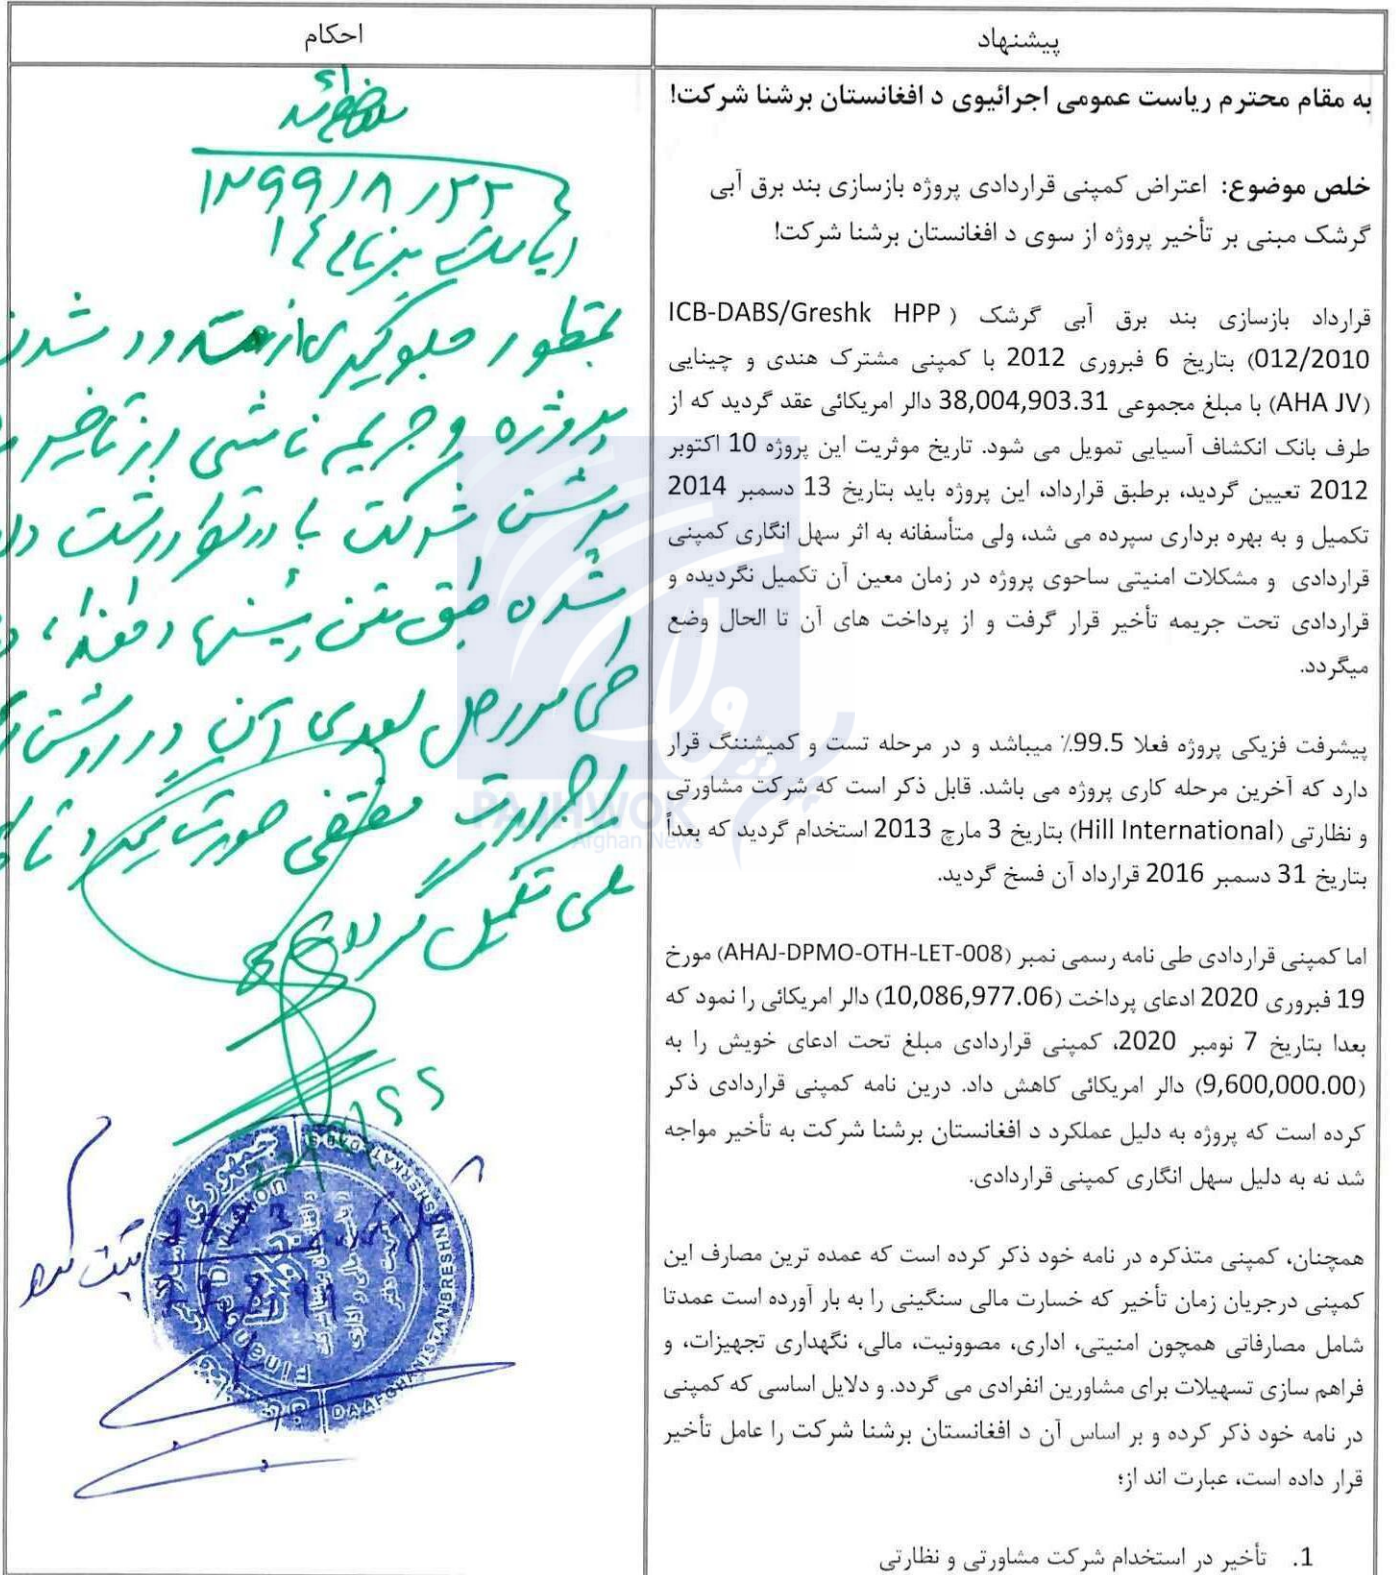 پیشنهاد
به مقام محترم ریاست عمومی اجرائیوی د افغانستان برشنا شرکت!
خلص موضوع: اعتراض کمپنی قراردادی پروژه بازسازی بند برق آبی
گرشک مبنی بر تأخیر پروژه از سوی د افغانستان برشنا شرکت!
قرارداد بازسازی بند برق آبی گرشک ( ICB-DABS/Greshk HPP
012/2010) بتاریخ 6 فبروری 2012 با کمپنی مشترک هندی و چینایی
(AHA JV) با مبلغ مجموعی 38,004,903.31 دالر امریکائی عقد گردید که از
طرف بانک انکشاف آسیایی تمویل می شود. تاریخ موثریت این پروژه 10 اکتوبر
2012 تعیین گردید، برطبق قرارداد، این پروژه باید بتاریخ 13 دسمبر 2014
تکمیل و به بهره برداری سپرده می شد، ولی متأسفانه به اثر سهل انگاری کمپنی
قراردادی و مشکلات امنیتی ساحوی پروژه در زمان معین آن تکمیل نگردیده و
قراردادی تحت جریمه تأخیر قرار گرفت و از پرداخت های آن تا الحال وضع
میگردد.
پیشرفت فزیکی پروژه فعلا 99.5٪ میباشد و در مرحله تست و کمیشننگ قرار
دارد که آخرین مرحله کاری پروژه می باشد. قابل ذکر است که شرکت مشاورتی
و نظارتی (Hill International) بتاریخ 3 مارچ 2013 استخدام گردید که بعداً
بتاریخ 31 دسمبر 2016 قرارداد آن فسخ گردید.
اما کمپنی قراردادی طی نامه رسمی نمبر (AHAJ-DPMO-OTH-LET-008) مورخ
19 فبروری 2020 ادعای پرداخت (10,086,977.06) دالر امریکائی را نمود که
بعدا بتاریخ 7 نومبر 2020، کمپنی قراردادی مبلغ تحت ادعای خویش را به
(9,600,000.00) دالر امریکائی کاهش داد. درین نامه کمپنی قراردادی ذکر
کرده است که پروژه به دلیل عملکرد د افغانستان برشنا شرکت به تأخیر مواجه
شد نه به دلیل سهل انگاری کمپنی قراردادی.
همچنان، کمپنی متذکره در نامه خود ذکر کرده است که عمده ترین مصارف این
کمپنی درجریان زمان تأخیر که خسارت مالی سنگینی را به بار آورده است عمدتا
شامل مصارفاتی همچون امنیتی، اداری، مصوونیت، مالی، نگهداری تجهیزات، و
فراهم سازی تسهیلات برای مشاورین انفرادی می گردد. و دلایل اساسی که کمپنی
در نامه خود ذکر کرده و بر اساس آن د افغانستان برشنا شرکت را عامل تأخیر
قرار داده است، عبارت اند از؛
1. تأخیر در استخدام شرکت مشاورتی و نظارتی
احکام
۱۳۹۹/۸/۲۲
بمنظور جلوگیری از شدن
پروژه و جریمه ناشی از تاخیر
برشنا شرکت با درنظرداشت
شده طبق متن پیشنهاد
بعدی آن در روشنی
صورت گیرد تا
ملی تکمیل گردد
ثبت شد
PAJHWOK
Afghan News